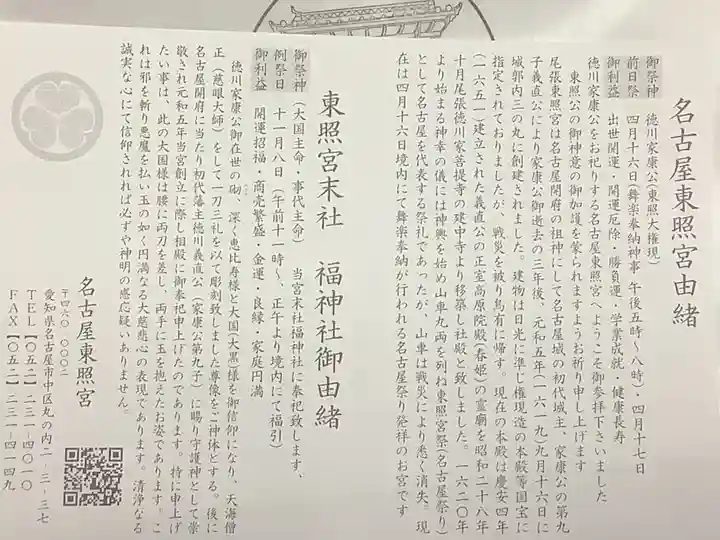 名古屋東照宮由緒
御祭神　徳川家康公(東照大権現)
前日祭　四月十六日(舞楽奉納神事 午後五時〜八時)・四月十七日
御利益　出世開運・開運厄除・勝負運・学業成就・健康長寿
徳川家康公をお祀りする名古屋東照宮へようこそ御参拝下さいました
東照公の御神意の御加護を蒙られますようお祈り申し上げます
尾張東照宮は名古屋開府の祖神にして名古屋城の初代城主、家康公の第九
子義直公により家康公御逝去の三年後、元和五年(一六一九)九月十六日に
城郭内三の丸に創建されました。建物は日光に準じ権現造の本殿等国宝に
指定されておりましたが、戦災を被り烏有に帰す。現在の本殿は慶安四年
(一六五一)建立された義直公の正室高原院殿(春姫)の霊廟を昭和二十八年
十月尾張徳川家菩提寺の建中寺より移築し社殿と致しました。一六二〇年
より始まる神幸の儀には神輿を始め山車九両を列ね東照宮祭(名古屋祭り)
として名古屋を代表する祭礼であったが、山車は戦災により悉く消失。現
在は四月十六日境内にて舞楽奉納が行われる名古屋祭り発祥のお宮です
東照宮末社　福神社御由緒
御祭神　(大国主命・事代主命)　当宮末社福神社に奉祀致します、
例祭日　十一月八日(午前十一時〜、正午より境内にて福引)
御利益　開運招福・商売繁盛・金運・良縁・家庭円満
徳川家康公御在世の砌、深く恵比寿様と大国大黒様を御信仰になり、天海僧
正(慈眼大師)をして一刀三礼を以て彫刻致しました尊像をご神体とする。後に
名古屋開府に当たり初代藩主徳川義直公(家康公第九子)に賜り守護神として崇
敬され元和五年当宮創立に際し相殿に御奉祀申上げたのであります。特に申上げ
たい事は、此の大国様は腰に両刀を差し、両手に玉を抱えたお姿であります。こ
れは邪を斬り悪魔を払い玉の如く円満なる大慈悲心の表現であります。清浄なる
誠実な心にて信仰されれば必ずや神明の感応疑いありません。
名古屋東照宮
〒四六〇-〇〇〇二
愛知県名古屋市中区丸の内二-三-三七
TEL【〇五二】二三一-四〇一〇
FAX【〇五二】二三一-四一四九